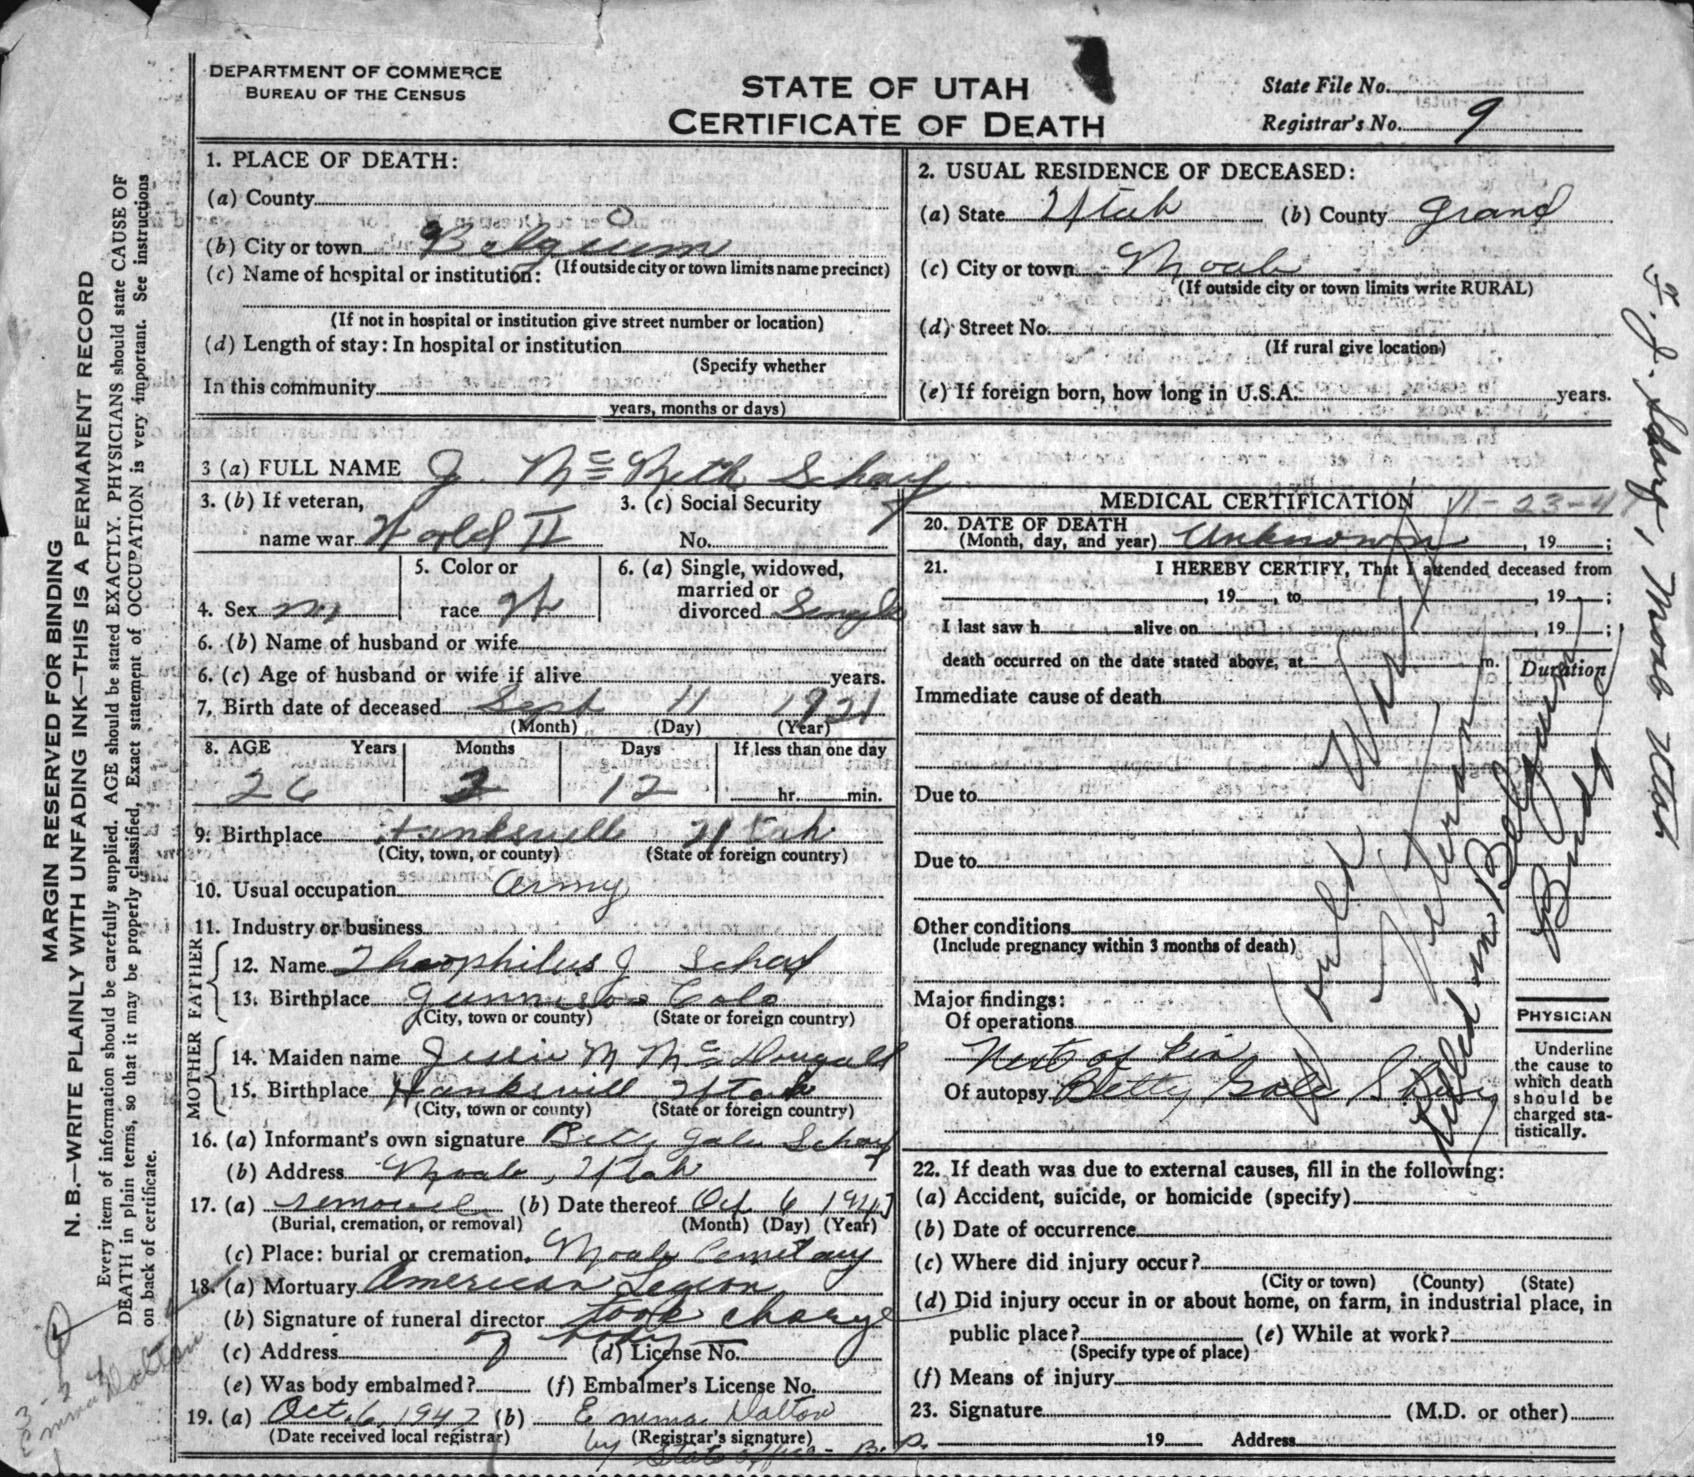 DEPARTMENT OF COMMERCE
BUREAU OF THE CENSUS
STATE OF UTAH
CERTIFICATE OF DEATH
State File No.
Registrar's No. 9
MARGIN RESERVED FOR BINDING
N. B.—WRITE PLAINLY WITH UNFADING INK—THIS IS A PERMANENT RECORD
Every item of information should be carefully supplied. AGE should be stated EXACTLY. PHYSICIANS should state CAUSE OF
DEATH in plain terms, so that it may be properly classified. Exact statement of OCCUPATION is very important. See instructions
on back of certificate.
1. PLACE OF DEATH:
(a) County
(b) City or town Belguim
(If outside city or town limits name precinct)
(c) Name of hospital or institution:
(If not in hospital or institution give street number or location)
(d) Length of stay: In hospital or institution
(Specify whether
In this community
years, months or days)
2. USUAL RESIDENCE OF DECEASED:
(a) State Utah (b) County Grand
(c) City or town Moab
(If outside city or town limits write RURAL)
(d) Street No.
(If rural give location)
(e) If foreign born, how long in U.S.A. years.
3 (a) FULL NAME J. McBeth Scharf
3. (b) If veteran,
name war World II
3. (c) Social Security
No.
4. Sex m
5. Color or
race W
6. (a) Single, widowed,
married or
divorced Single
6. (b) Name of husband or wife
6. (c) Age of husband or wife if alive years.
7, Birth date of deceased Sept 11 1921
(Month) (Day) (Year)
8. AGE Years Months Days If less than one day
26 2 12 hr. min.
9. Birthplace Hanksville Utah
(City, town, or county) (State or foreign country)
10. Usual occupation Army
11. Industry or business
FATHER
12. Name Theophilus J Scharf
13. Birthplace Gunnison Colo
(City, town or county) (State or foreign country)
MOTHER
14. Maiden name Jessie M McDougald
15. Birthplace Hanksvill Utah
(City, town or county) (State or foreign country)
16. (a) Informant's own signature Betty Gale Scharf
(b) Address Moab, Utah
17. (a) removel (b) Date thereof Oct 6 1947
(Burial, cremation, or removal) (Month) (Day) (Year)
(c) Place: burial or cremation, Moab Cemetary
18. (a) Mortuary American Legion
(b) Signature of funeral director took charge
of body
(c) Address (d) License No.
(e) Was body embalmed? (f) Embalmer's License No.
19. (a) Oct. 6, 1947 (b) Emma Dalton
(Date received local registrar) (Registrar's signature)
by State office - B.P.
MEDICAL CERTIFICATION 11-23-4
20. DATE OF DEATH
(Month, day, and year) Unknown , 19 ;
21. I HEREBY CERTIFY, That I attended deceased from
, 19 , to , 19 ;
I last saw h alive on , 19 ;
death occurred on the date stated above, at m.
Duration
Immediate cause of death
Due to
Due to
Other conditions
(Include pregnancy within 3 months of death)
Major findings:
Of operations
Next of kin
Of autopsy Betty Gale
World War II
Veteran
Killed in Belguim
Buried
PHYSICIAN
Underline
the cause to
which death
should be
charged sta-
tistically.
22. If death was due to external causes, fill in the following:
(a) Accident, suicide, or homicide (specify)
(b) Date of occurrence
(c) Where did injury occur?
(City or town) (County) (State)
(d) Did injury occur in or about home, on farm, in industrial place, in
public place? (e) While at work?
(Specify type of place)
(f) Means of injury
23. Signature (M.D. or other)
19 Address
T. J. Scharf, Moab Utah
Emma Dalton